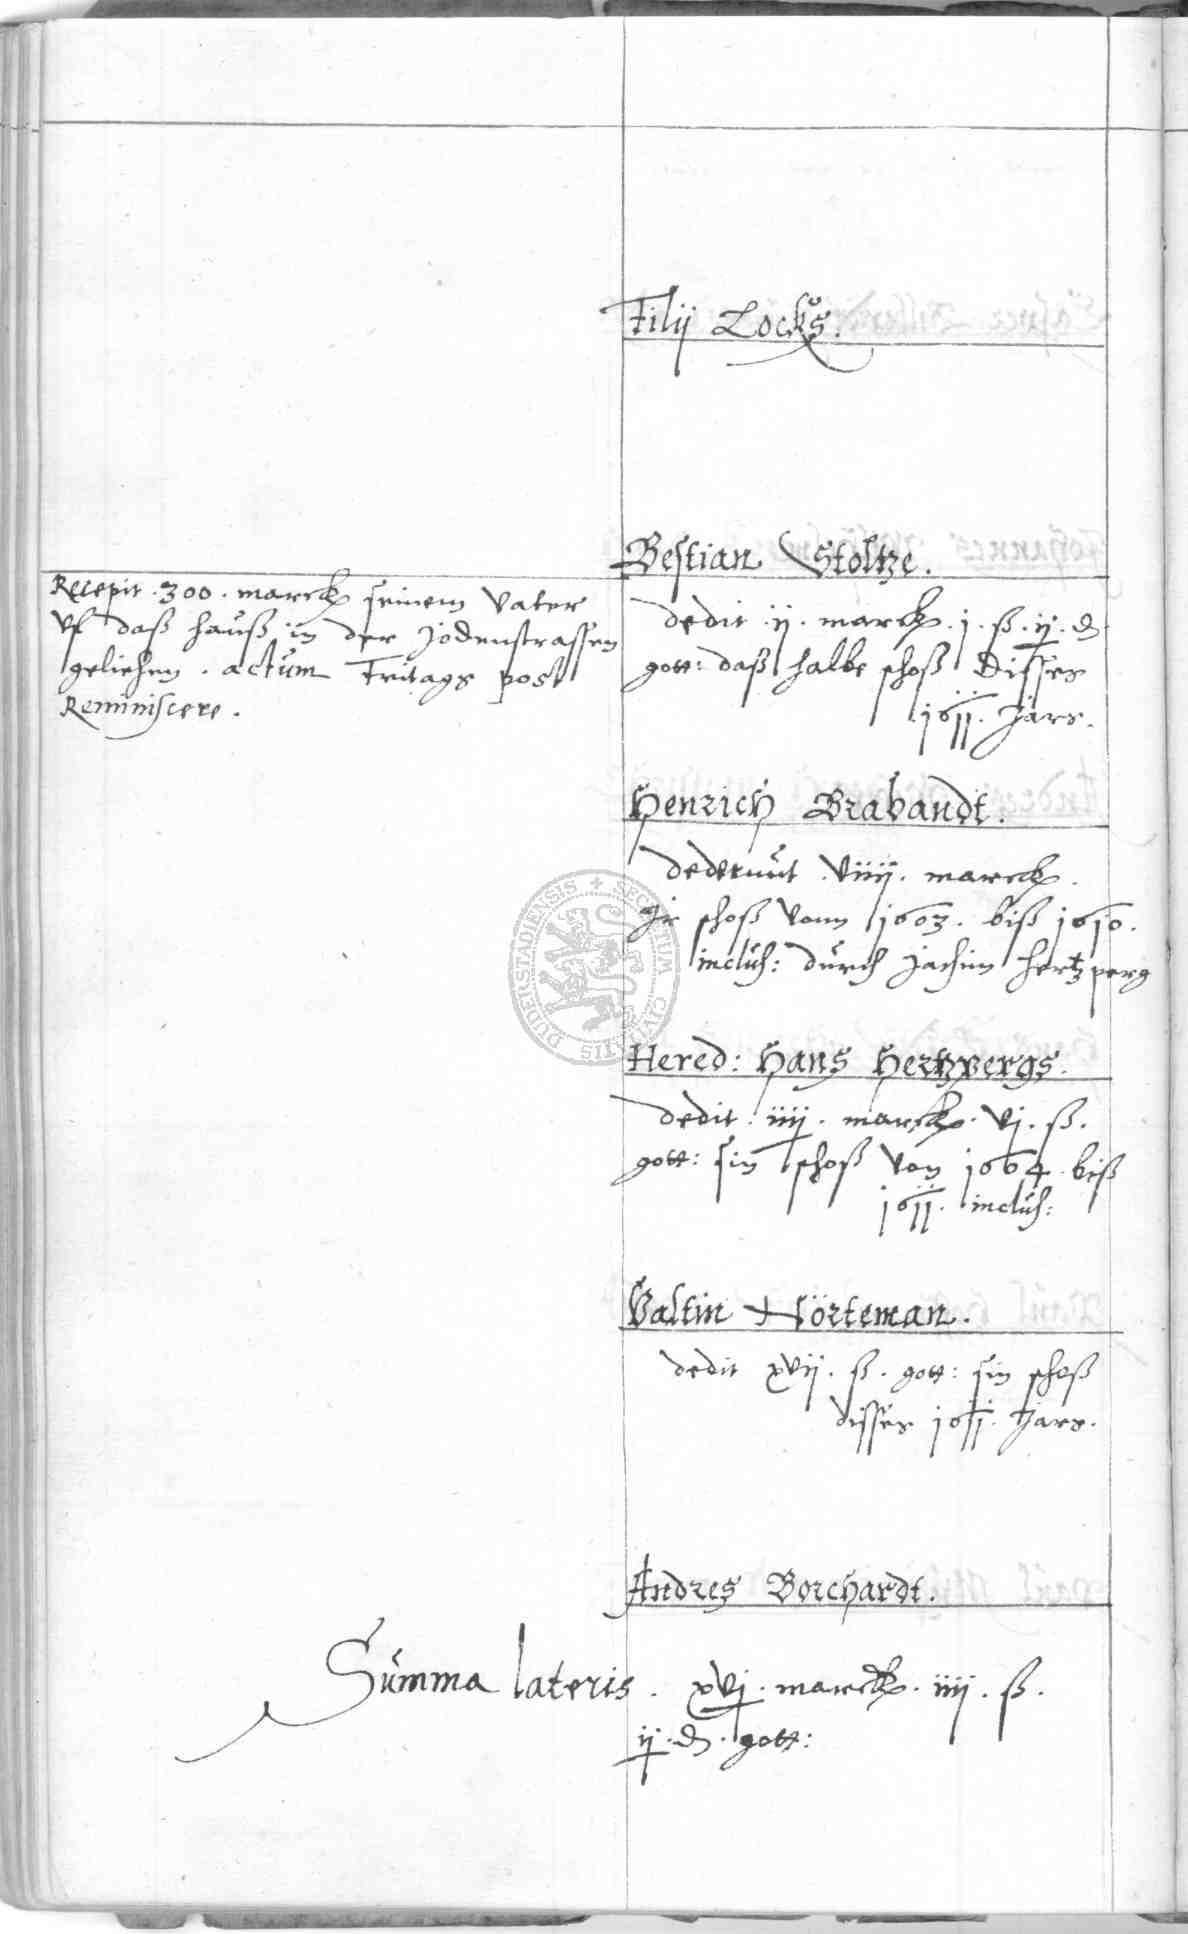 Filij Locks.
Bestian Stoltze.
Recepit . 300 . marck seinem Vater
vf daß hauß in der Jodenstrassen
geliehen . actum Fritags post
Reminiscere .
dedit . ij . marck . j . ß . ij . d
gott: daß halbe schoß disses
1611 . Jars .
Henrich Brabandt .
dederunt viiij . marck .
Ir schoß vonn 1603 . biß 1610 .
inclus: durch Jachim Hertzperg
Hered: Hans Hertzpergs .
dedit . iiij . marck . vj . ß .
gott: sin schoß von 1604 biß
1611 . inclus:
Valtin Nörteman .
dedit xvij . ß . gott: sin schoß
disses 1611 . Jars .
Andres Borchardt .
Summa lateris . xvj . marck . iiij . ß .
ij . d . gott:
SECRETUM CIVITATIS DUDERSTADIENSIS